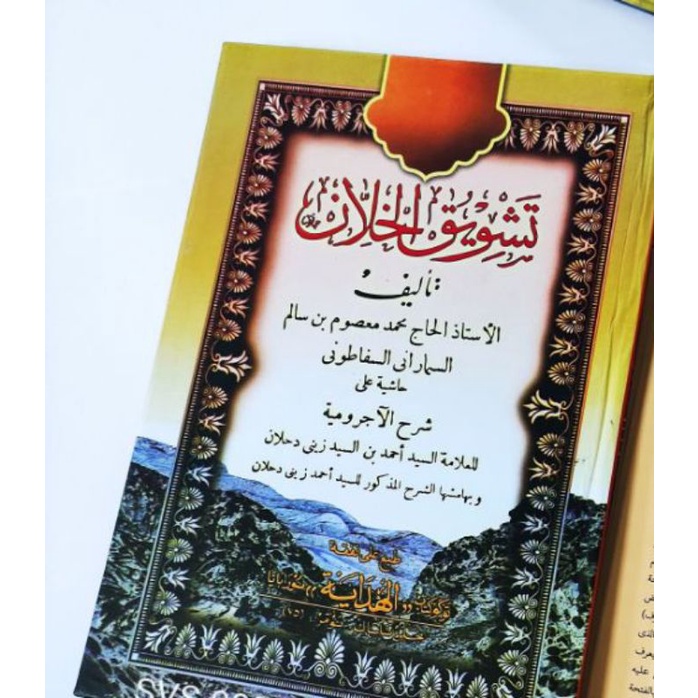 تشويق الخلان
تأليف
الأستاذ الحاج محمد معصوم بن سالم
السماراني السفاطوني
حاشية على
شرح الآجرومية
للعلامة السيد أحمد بن السيد زيني دحلان
وبهامشها الشرح المذكور للسيد أحمد زيني دحلان
طبع على نفقة
توكو كتاب "الهداية" سورابايا